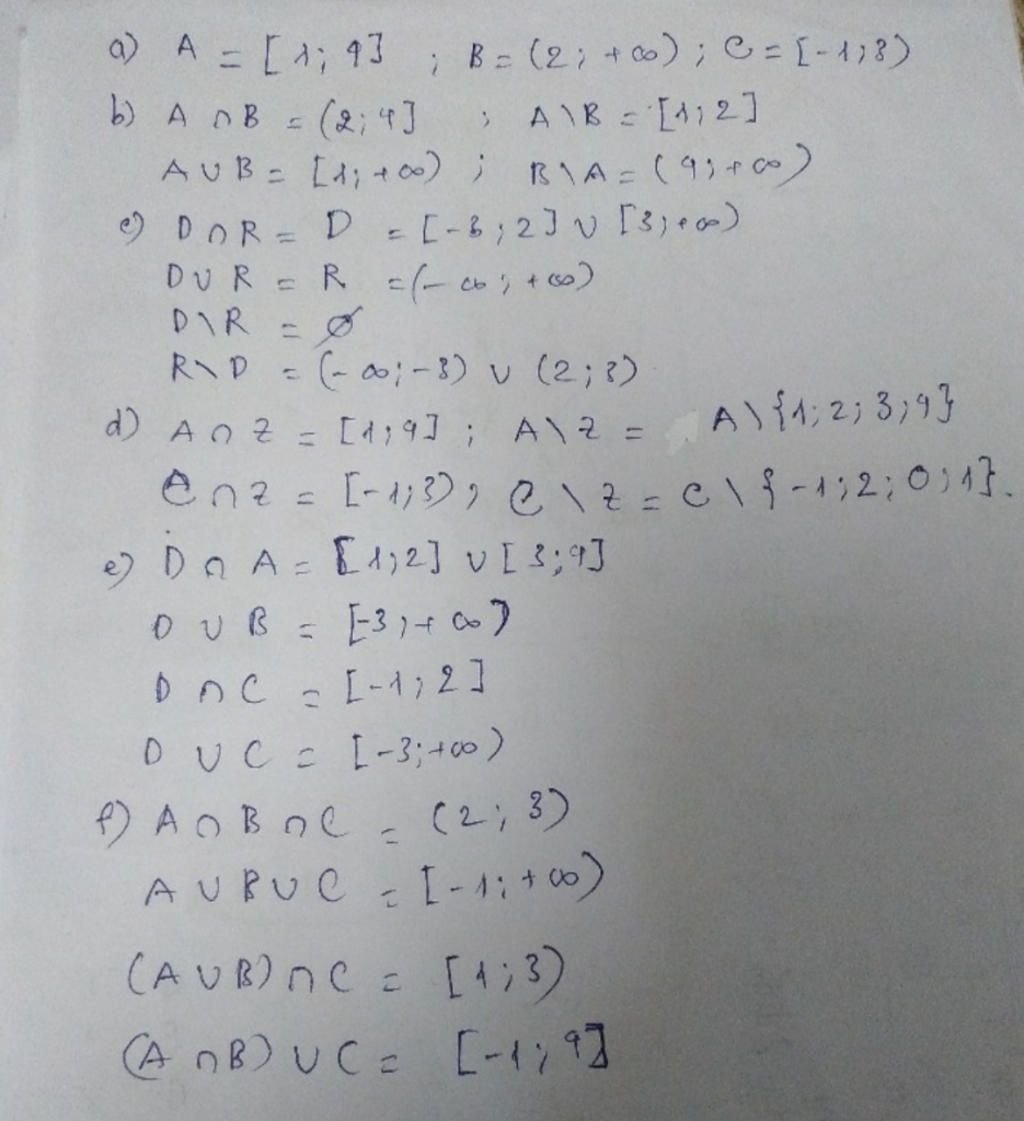 a) A = [1; 4] ; B = (2; +∞) ; C = [-1;3)
b) A ∩ B = (2; 4] ; A \ B = [1; 2]
A ∪ B = [1; +∞) ; B \ A = (4; +∞)
c) D ∩ R = D = [-3; 2] ∪ [3; +∞)
D ∪ R = R = (-∞; +∞)
D \ R = ∅
R \ D = (-∞; -3) ∪ (2; 3)
d) A ∩ Z = [1; 4] ; A \ Z = A \ {1; 2; 3; 4}
C ∩ Z = [-1; 3) ; C \ Z = C \ {-1; 2; 0; 1}.
e) D ∩ A = [1; 2] ∪ [3; 4]
D ∪ B = [-3; +∞)
D ∩ C = [-1; 2]
D ∪ C = [-3; +∞)
f) A ∩ B ∩ C = (2; 3)
A ∪ B ∪ C = [-1; +∞)
(A ∪ B) ∩ C = [1; 3)
(A ∩ B) ∪ C = [-1; 4]